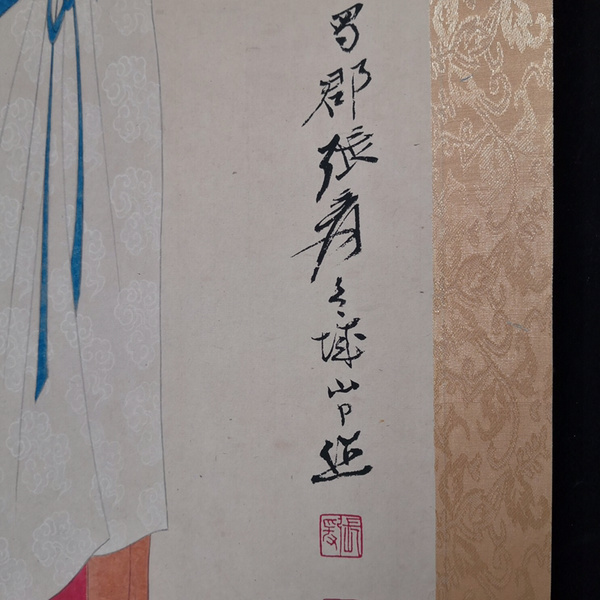 蜀郡張爰青城山中造
張爰